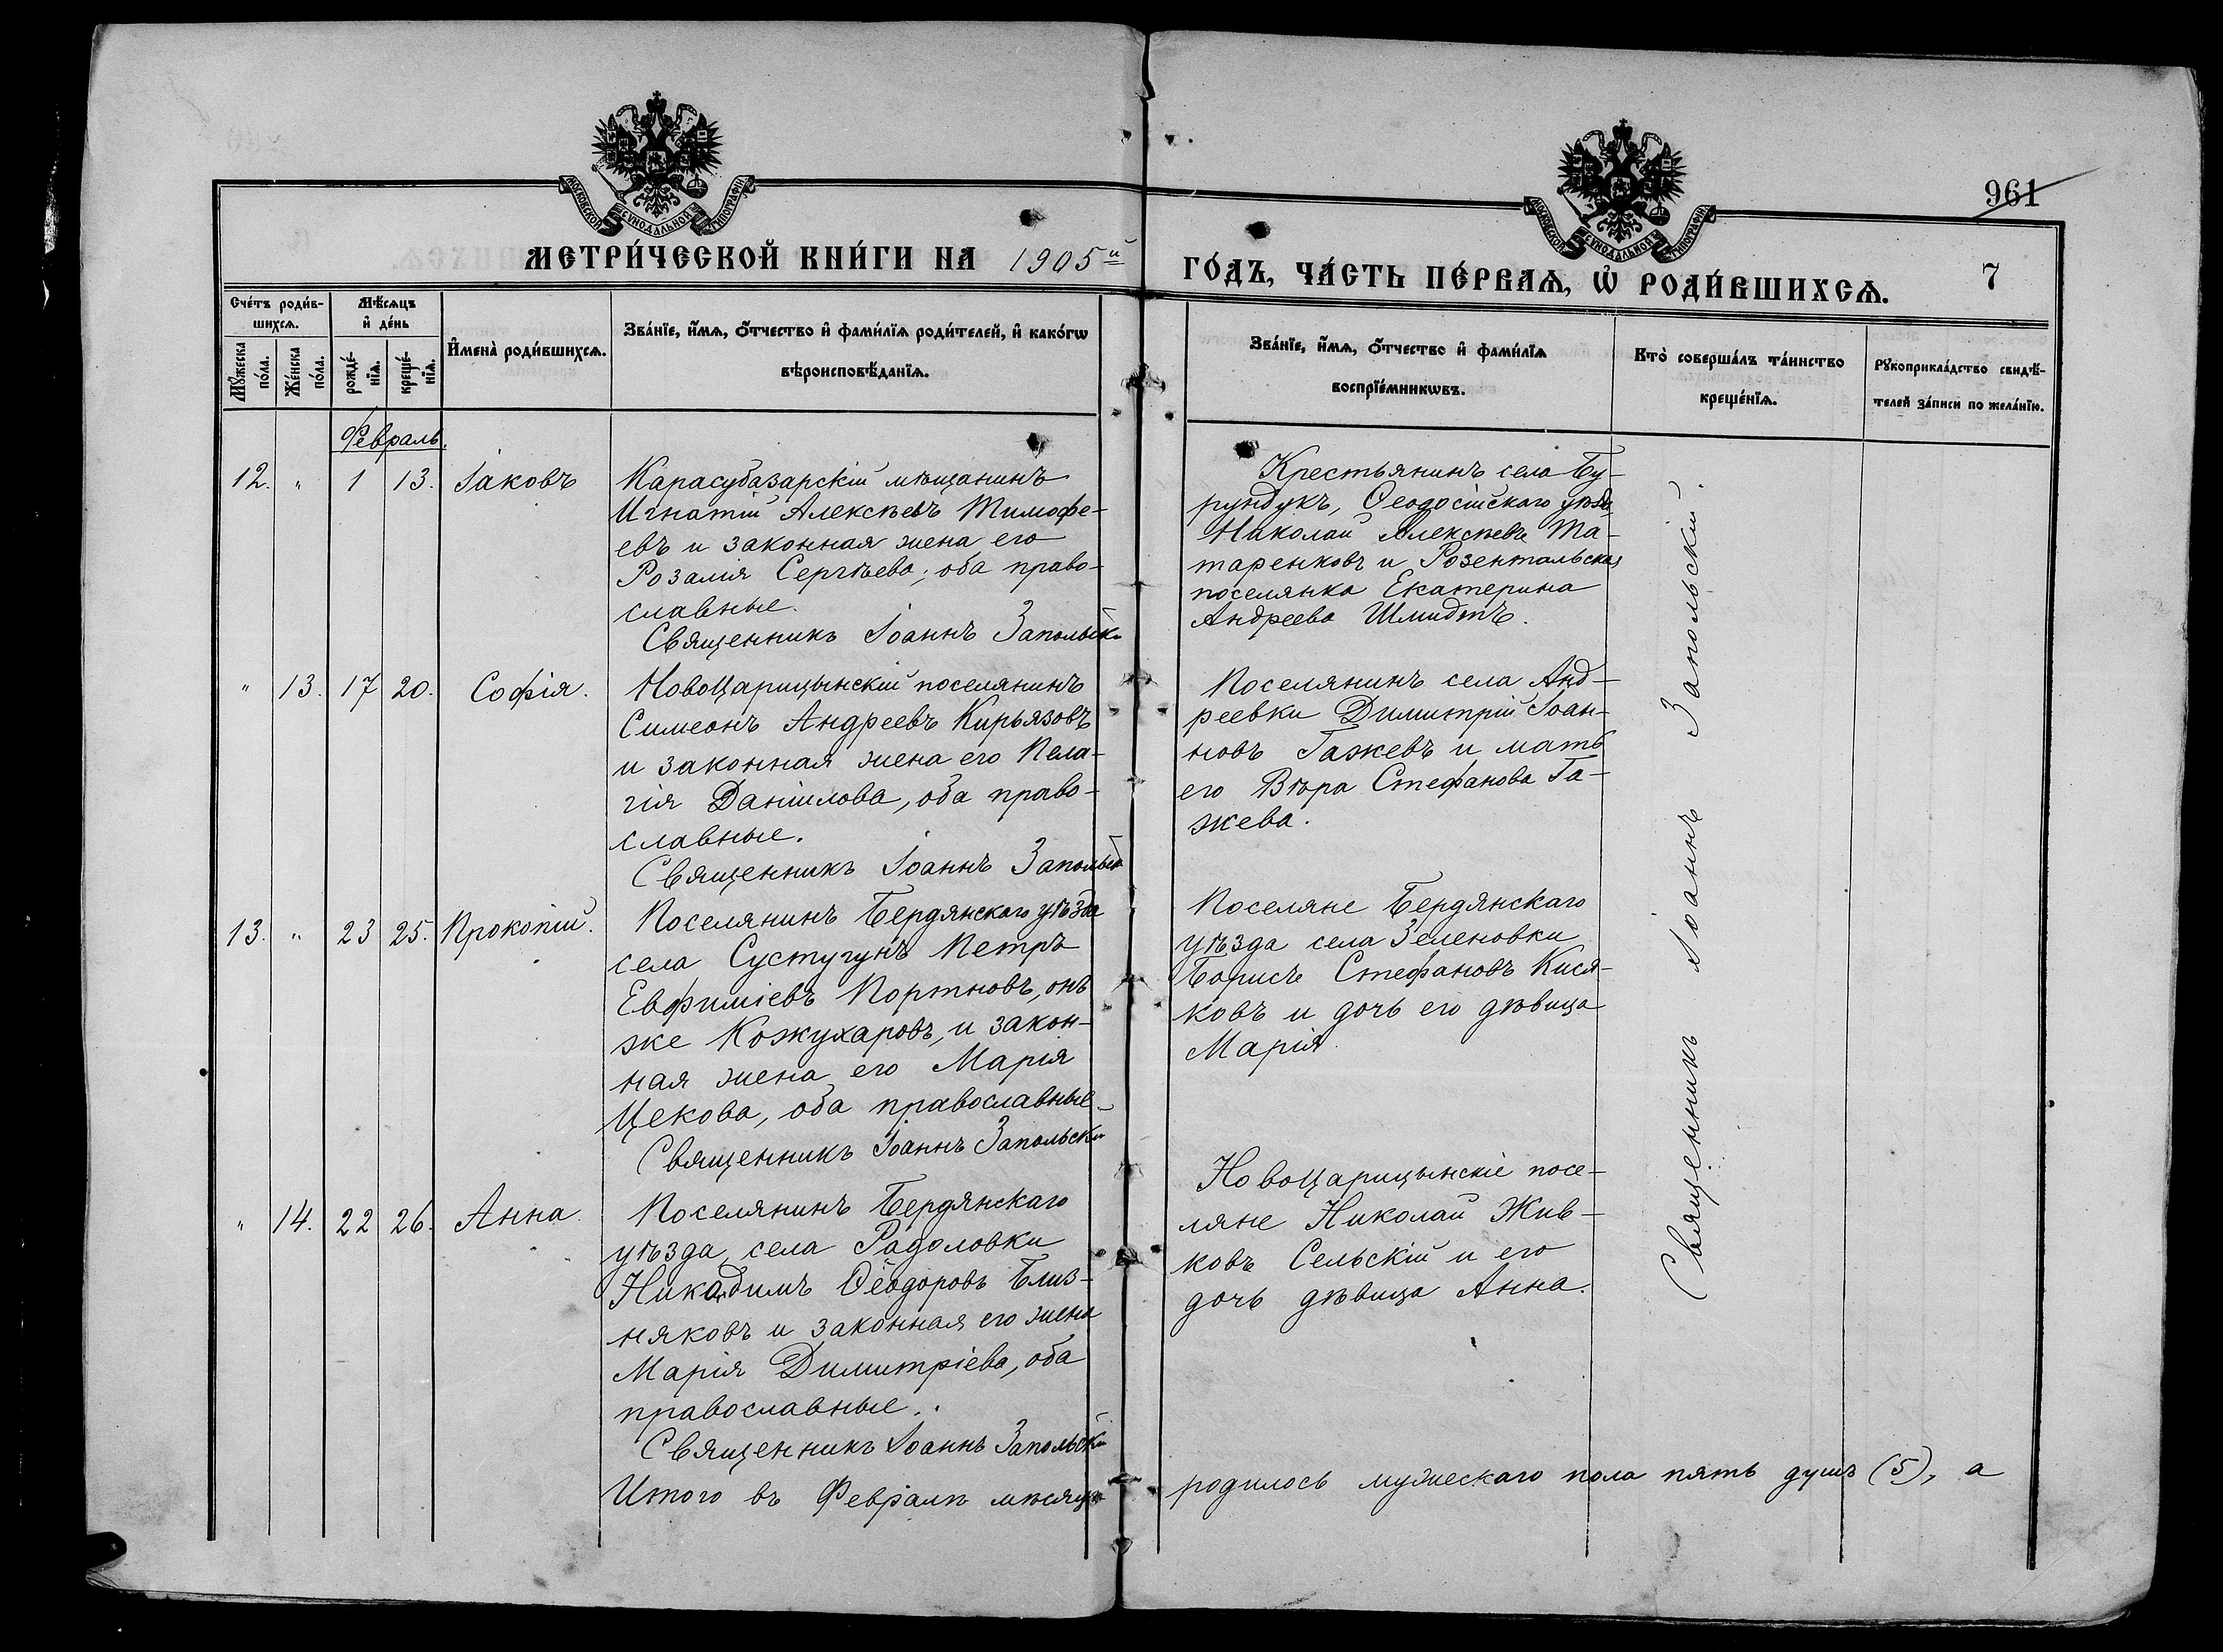 МОСКОВСКОЙ СѴНОДАЛЬНОЙ ТИПОГРАФІИ
МОСКОВСКОЙ СѴНОДАЛЬНОЙ ТИПОГРАФІИ
961
МЕТРИ́ЧЕСКОЙ КНИ́ГИ НА 1905й
ГО́ДЪ, ЧА́СТЬ ПЕ́РВАѦ, Ѡ҆ РОДИ́ВШИХСѦ.
7
Сче́тъ роди́в-
шихсѧ.
Мꙋ́жеска по́ла.
Же́нска по́ла.
Мѣ́сѧцъ
и҆ де́нь
рожде́-
нїѧ.
креще́-
нїѧ.
И҆мена̀ роди́вшихсѧ.
Зва́нїе, и҆́мѧ, ѻ҆́тчество и҆ фами́лїѧ роди́телей, и҆ како́гѡ
вѣроисповѣ́данїѧ.
Зва́нїе, и҆́мѧ, ѻ҆́тчество и҆ фами́лїѧ
воспрїе́мникѡвъ.
Кто̀ соверша́лъ та́инство
креще́нїѧ.
Рꙋкоприкла́дство свидѣ́-
телей за́писи по жела́нїю.
Февраль.
12. " 1 13. Іаковъ
Карасубазарскій мѣщанинъ
Игнатій Алексѣевъ Тимофе-
евъ и законная жена его
Розалія Сергѣева; оба право-
славные.
Священникъ Іоаннъ Запольскій
Крестьянинъ села Бу-
рундукъ, Ѳеодосійскаго уѣзда
Николай Алексѣевъ Та-
таренковъ и Розентальская
поселянка Екатерина
Андреева Шмидтъ.
" 13. 17 20. Софія.
НовоЦарицынскій поселянинъ
Симеонъ Андреевъ Кирьязовъ
и законная жена его Пела-
гія Даніилова, оба право-
славные.
Священникъ Іоаннъ Запольскій
Поселянинъ села Анд-
реевки Димитрій Іоан-
новъ Гажевъ и мать
его Вѣра Стефанова Га-
жева.
13. " 23 25. Прокопій.
Поселянинъ Бердянскаго уѣзда
села Сустугунъ Петръ
Евфиміевъ Портновъ, онъ
же Кожухаровъ, и закон-
ная жена его Марія
Цекова, оба православные.
Священникъ Іоаннъ Запольскій
Поселяне Бердянскаго
уѣзда села Зеленовки
Борисъ Стефановъ Кися-
ковъ и дочь его дѣвица
Марія.
" 14. 22 26. Анна.
Поселянинъ Бердянскаго
уѣзда, села Радоловки
Никодимъ Ѳеодоровъ Близ-
няковъ и законная его жена
Марія Димитріева, оба
православные.
Священникъ Іоаннъ Запольскій
НовоЦарицынскіе посе-
ляне Николай Жив-
ковъ Сельскій и его
дочь дѣвица Анна.
Священникъ Іоаннъ Запольскій.
Итого въ Февралѣ мѣсяцѣ родилось мужескаго пола пять душъ (5), а